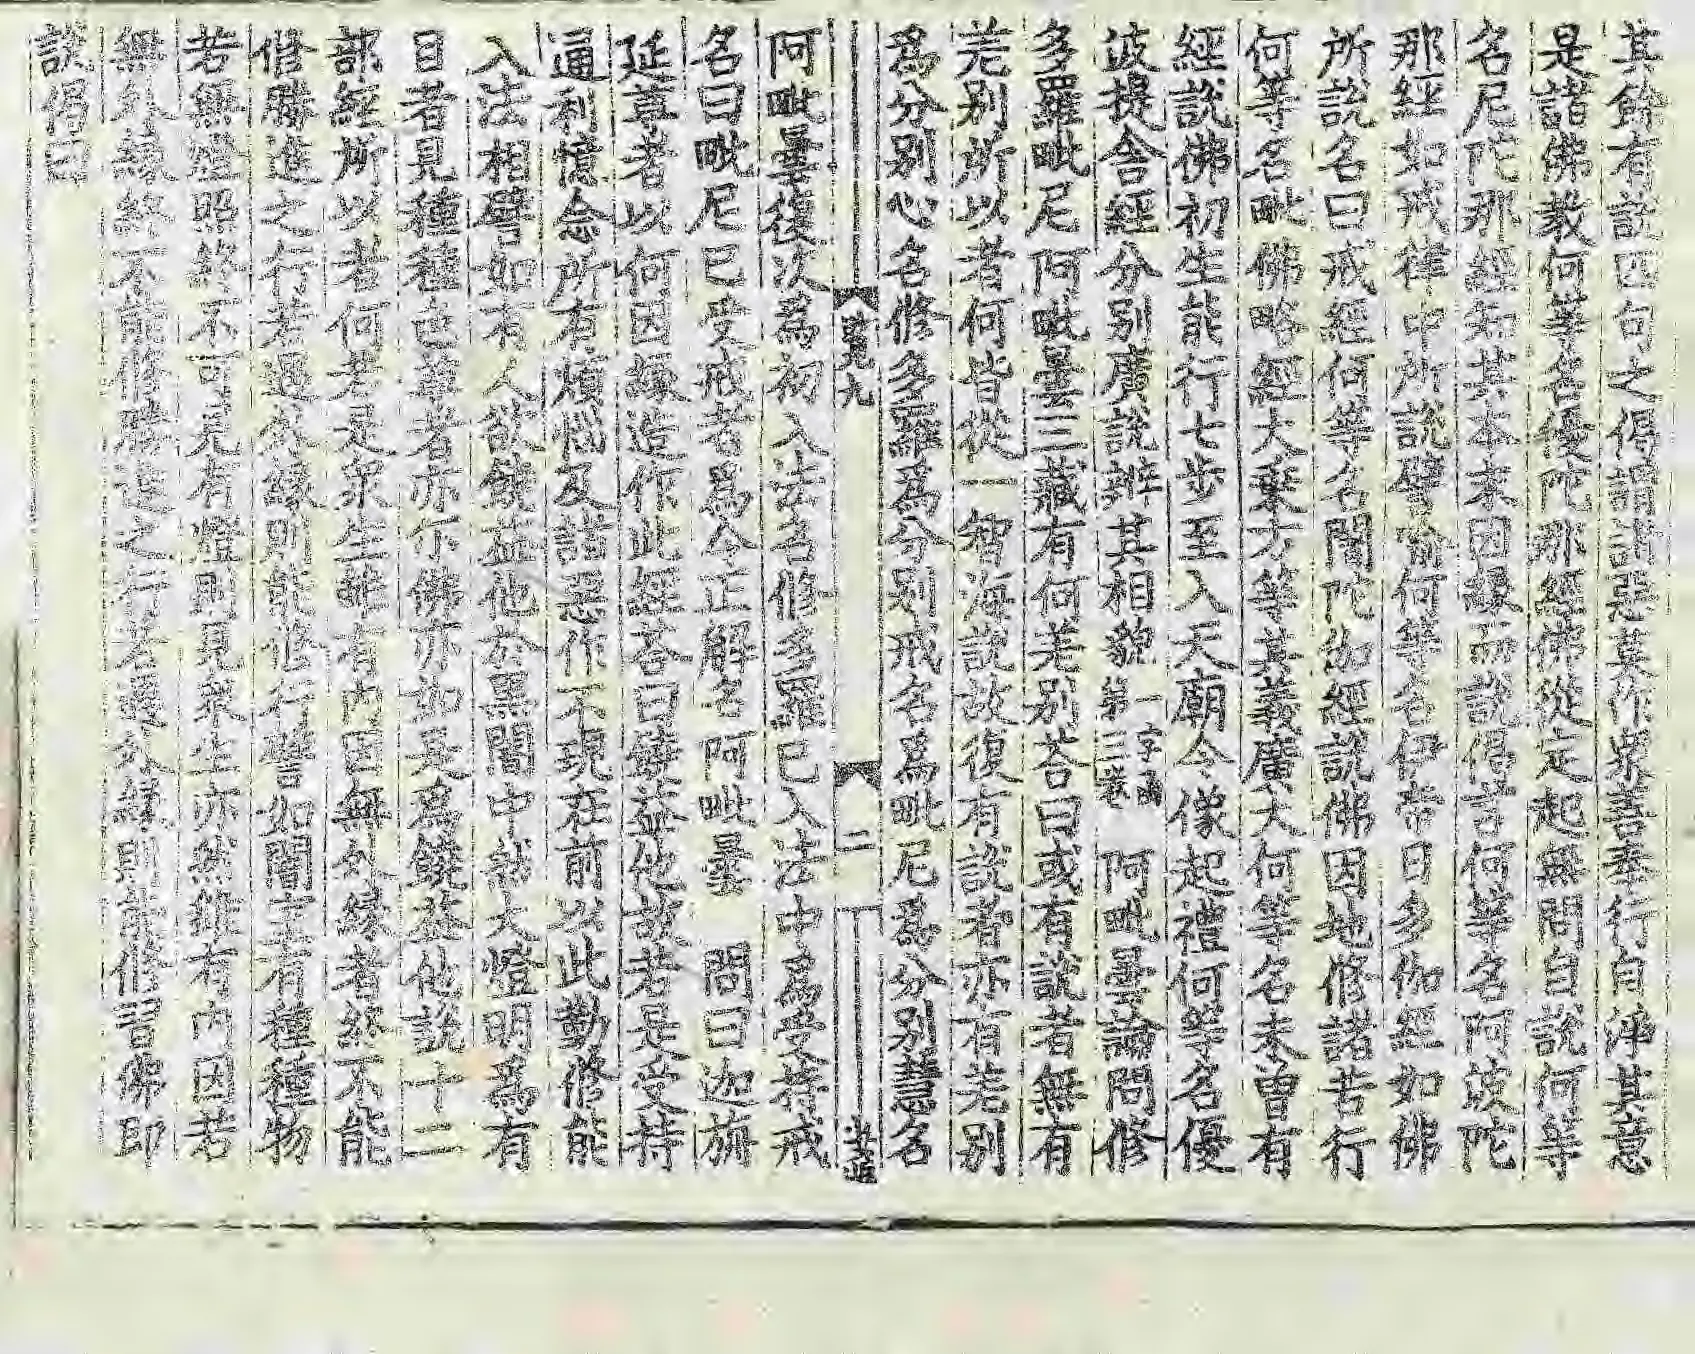 其餘有說四句之偈謂諸惡莫作衆善奉行自淨其意
是諸佛教何等名優陀那經佛從定起無問自說何等
名尼陀那經知其本末因緣而說偈言何等名阿波陀
那經如戒律中所說譬喻何等名伊帝曰多伽經如佛
所說名曰戒經何等名闍陀伽經說佛因地修諸苦行
何等名毗佛略經大乗方等其義廣大何等名未曽有
經說佛初生能行七步至入天廟令像起禮何等名優
波提舍經分別廣說辨其相貌 一字函第三卷 阿毗曇論問修
多羅毗尼阿毗曇三藏有何差別荅曰或有說者無有
差別所以者何皆從一智海說故復有說者亦有差別
爲分別心名修多羅爲分別戒名爲毗尼爲分別慧名
二
阿毗曇復次爲初入法名修多羅已入法中爲受持戒
名曰毗尼已受戒者爲令正解名阿毗曇 問曰迦旃
延尊者以何因緣造作此經荅曰饒益他故若是受持
通利憶念所有煩惱及諸惡作不現在前以此勤修能
入法相譬如有人欲饒益他於黒闇中然大燈明爲有
目者見種種色尊者亦尒佛亦如是爲饒益他說十二
部經所以者何若是衆生雖有內因無外緣者終不能
修勝進之行若遇外緣則能修行譬如闇室有種種物
若無燈照終不可見有燈則見衆生亦然雖有內因若
無外緣終不能修勝進之行若遇外緣則能修習佛即
說偈曰